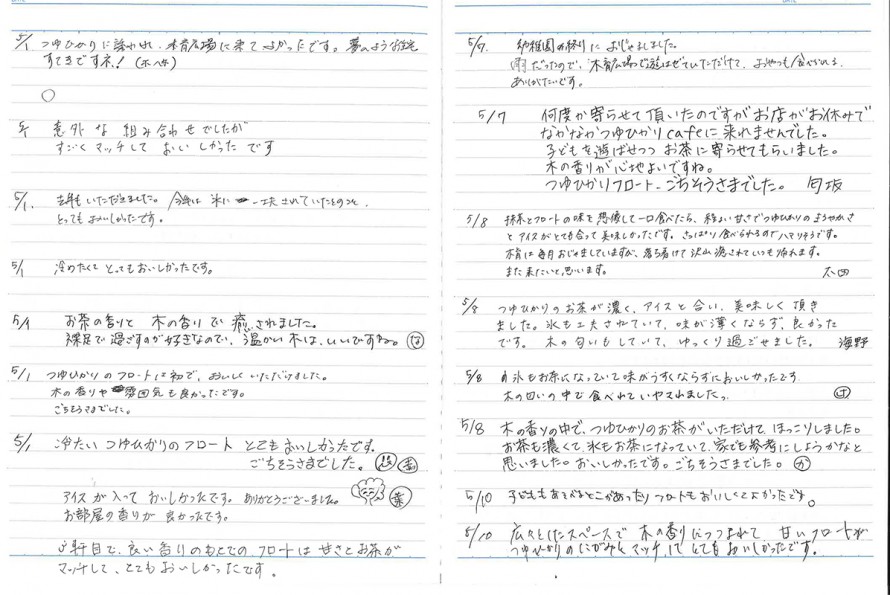 5/1 つゆひかりに誘われ、木育広場に来てよかったです。夢のようなお宅
すてきですネ!
5/1 意外な組み合わせでしたが
すごくマッチしておいしかったです
5/1. 去年もいただきました。今年は氷に一工夫されていたとのこと、
とってもおいしかったです。
5/1 冷めたくてとってもおいしかったです。
5/1 お茶の香りと木の香りで癒されました。
裸足で過ごすのが好きなので、温かい木は、いいですね。(な)
5/1 つゆひかりのフロートは初で、おいしくいただけました。
木の香りや雰囲気も良かったです。
ごちそうさまでした。
5/1 冷たいつゆひかりのフロートとてもおいしかったです。
ごちそうさまでした。
アイスが入っておいしかったです。ありがとうございました。(葉)
お部屋の香りが良かったです。
年目で、良い香りのもとでのフロートは甘さとお茶が
マッチして、とてもおいしかったです。
5/7. 幼稚園の終りにおじゃましました。
雨だったので、木育広場で遊ばせていただけて、おやつも食べられる
ありがたいです。
5/7 何度か寄らせて頂いたのですがお店がお休みで
なかなかつゆひかりcafeに来れませんでした。
子どもを遊ばせつつお茶に寄らせてもらいました。
木の香りが心地よいですね。
つゆひかりフロート、ごちそうさまでした。 匂坂
5/8 抹茶フロートの味を想像して一口食べたら、程よい甘さでつゆひかりのまろやかさ
とアイスがとても合って美味しかったです。さっぱり食べられるのでハマりそうです。
木育には毎月おじゃましていますが、落ち着けて沢山癒されていつも帰れます。
また来たいと思います。 太田
5/8 つゆひかりのお茶が濃く、アイスと合い、美味しく頂き
ました。氷も工夫されていて、味が薄くならず、良かった
です。木の匂いもしていて、ゆっくり過ごせました。 海野
5/8 氷もお茶になっていて味がうすくならずにおいしかったです
木の匂いの中で食べれていやされましたっ。(は)
5/8 木の香りの中で、つゆひかりのお茶がいただけて、ほっこりしました。
お茶も濃くて、氷もお茶になっていて、家でも参考にしようかなと
思いました。おいしかったです。ごちそうさまでした。(か)
5/10 子どももあそべるとこがあったりフロートもおいしくてよかったです。
5/10 広々としたスペースで木の香りにつつまれて甘いフロートが
つゆひかりのにがみとマッチしてとてもおいしかったです。